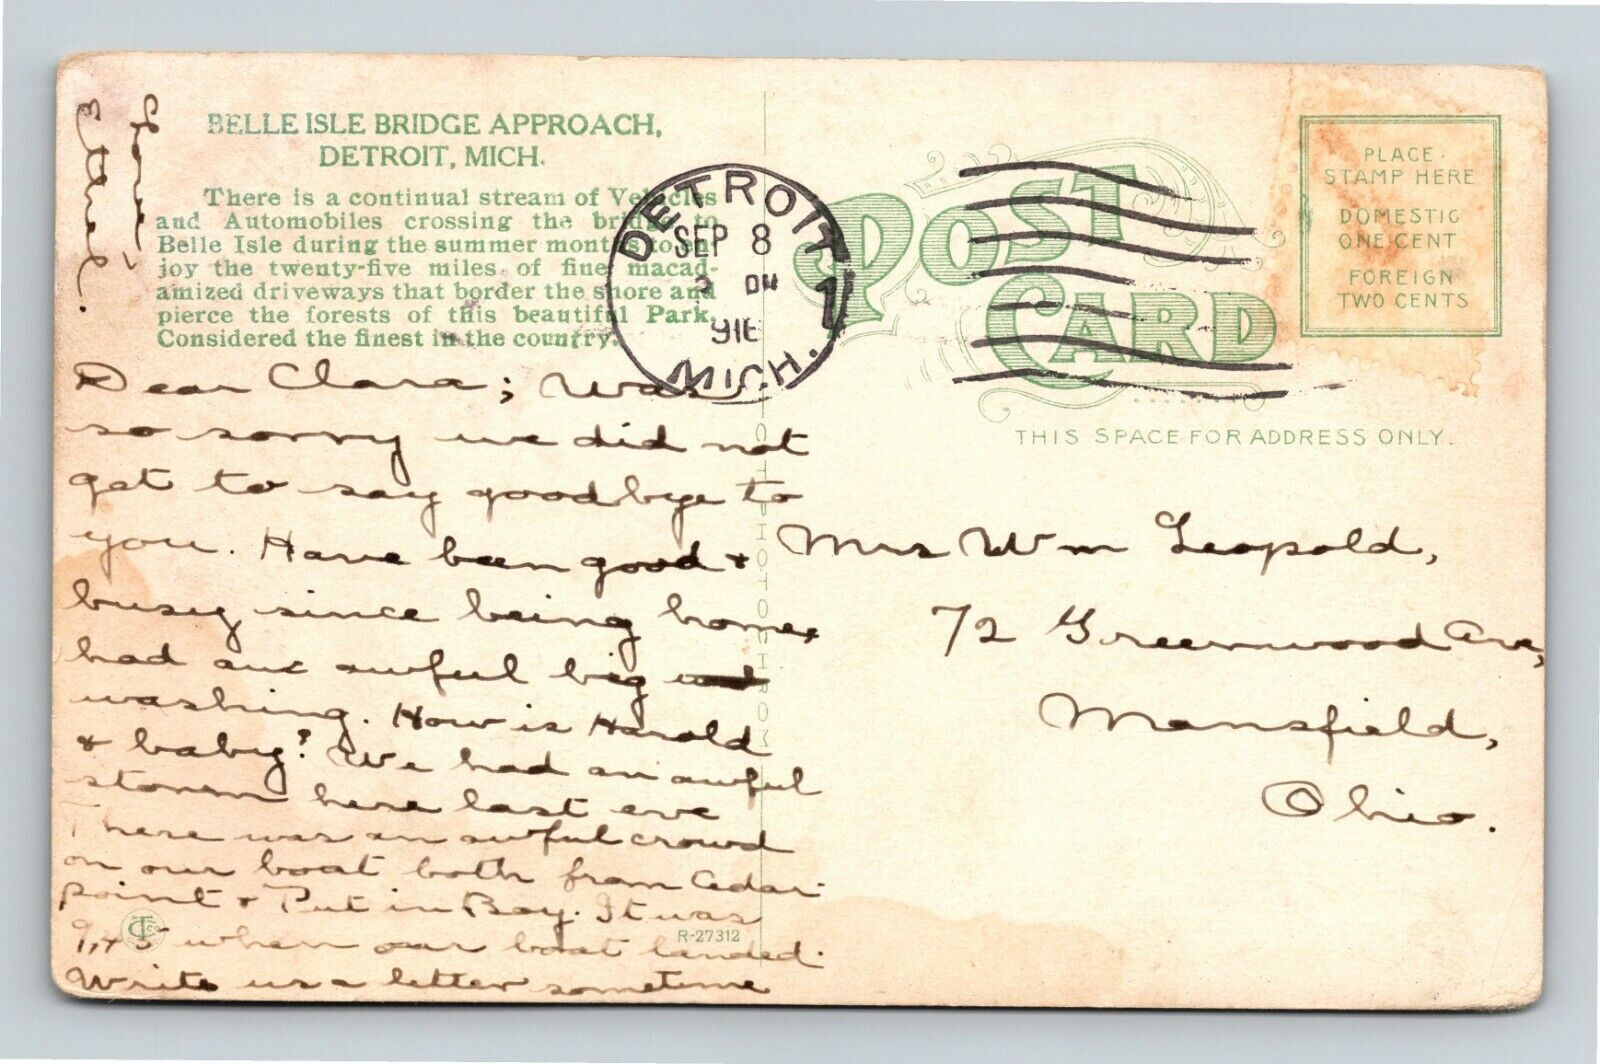 BELLE ISLE BRIDGE APPROACH,
DETROIT, MICH.
There is a continual stream of Vehicles
and Automobiles crossing the bridge to
Belle Isle during the summer months to en-
joy the twenty-five miles of fine macad-
amized driveways that border the shore and
pierce the forests of this beautiful Park.
Considered the finest in the country.
DETROIT, MICH.
SEP 8
PM
1
POST CARD
PLACE
STAMP HERE
DOMESTIC
ONE CENT
FOREIGN
TWO CENTS
THIS SPACE FOR ADDRESS ONLY.
Dear Clara; Was
so sorry we did not
get to say goodbye to
you. Have been good &
busy since being home,
had an awful big
washing. How is Harold
& baby? We had an awful
storm here last eve
There was an awful crowd
on our boat both from Cedar
point & Put in Bay. It was
9,45 when our boat landed.
Write us a letter sometime
Love,
Ethel.
Mrs Wm Leopold,
72 Greenwood Ave,
Mansfield,
Ohio.
R-27312
PHOTOCHROM